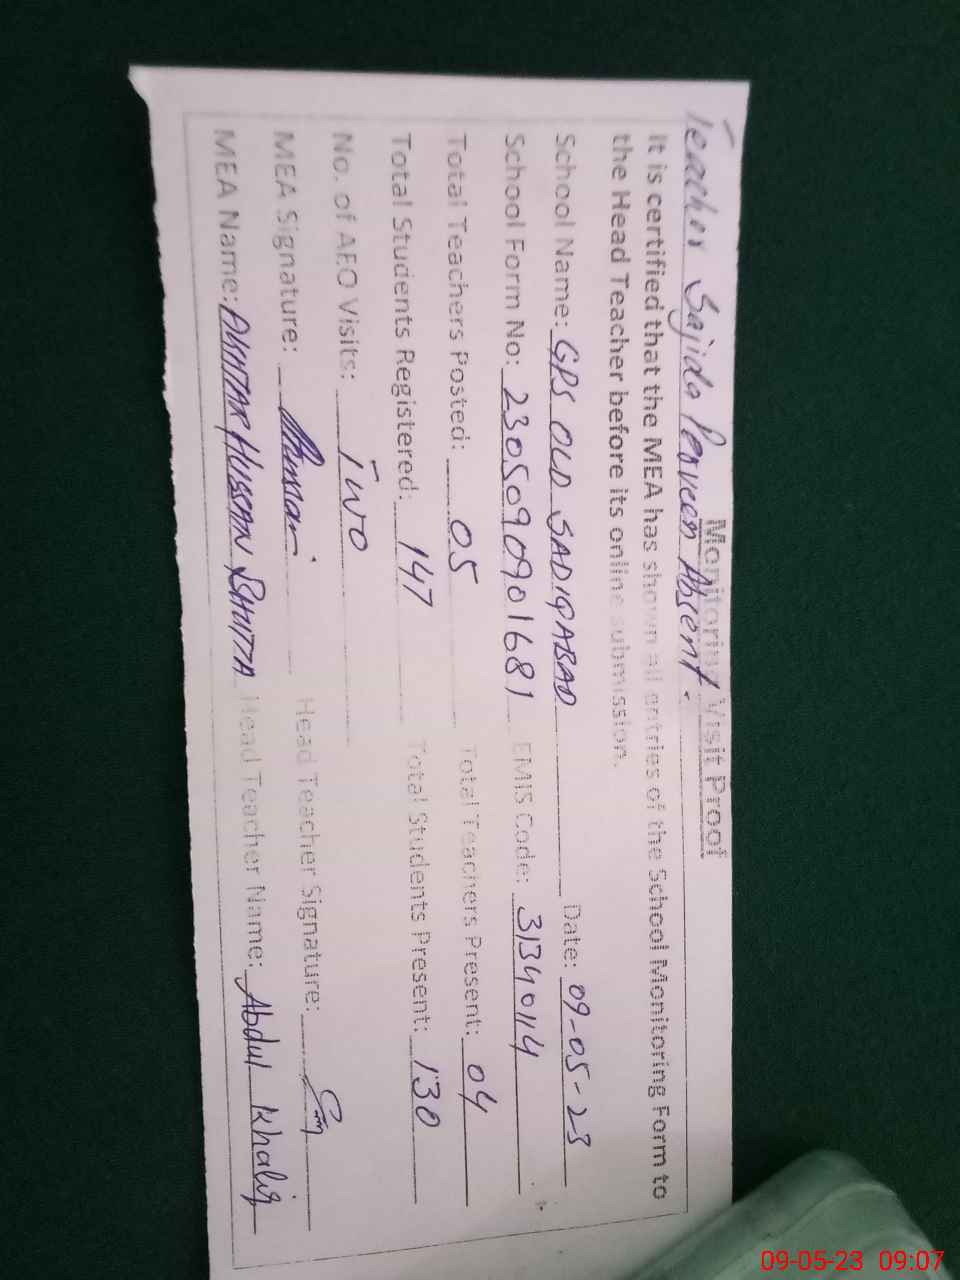 Monitoring Visit Proof
Teacher Sajida Perveen Absent.
It is certified that the MEA has shown all entries of the School Monitoring Form to
the Head Teacher before its online submission.
School Name: GPS OLD SADIQABAD Date: 09-05-23
School Form No: 230509090901681 EMIS Code: 31340114
Total Teachers Posted: 05 Total Teachers Present: 04
Total Students Registered: 147 Total Students Present: 130
No. of AEO Visits: Two
MEA Signature: Head Teacher Signature:
MEA Name: AKHTAR HUSSAIN BHUTTA Head Teacher Name: Abdul Khaliq
09-05-23 09:07